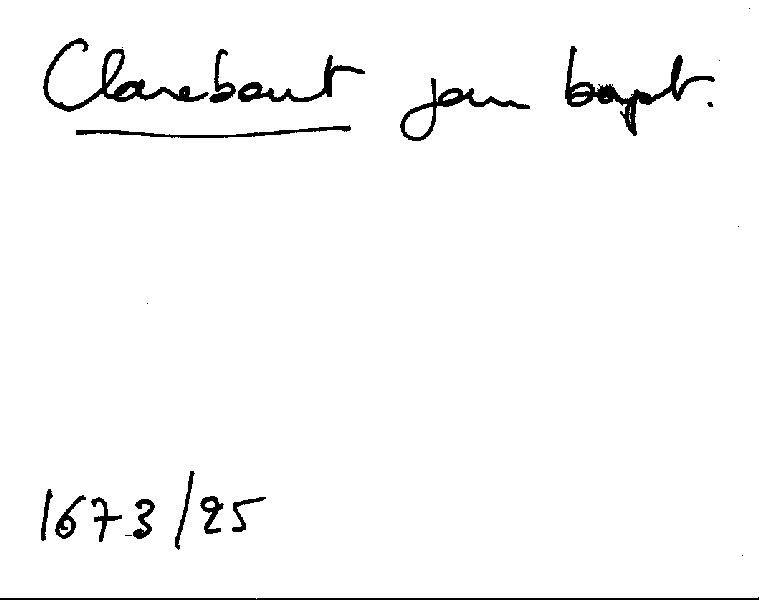 Clarebout jan bapt.
1673/25